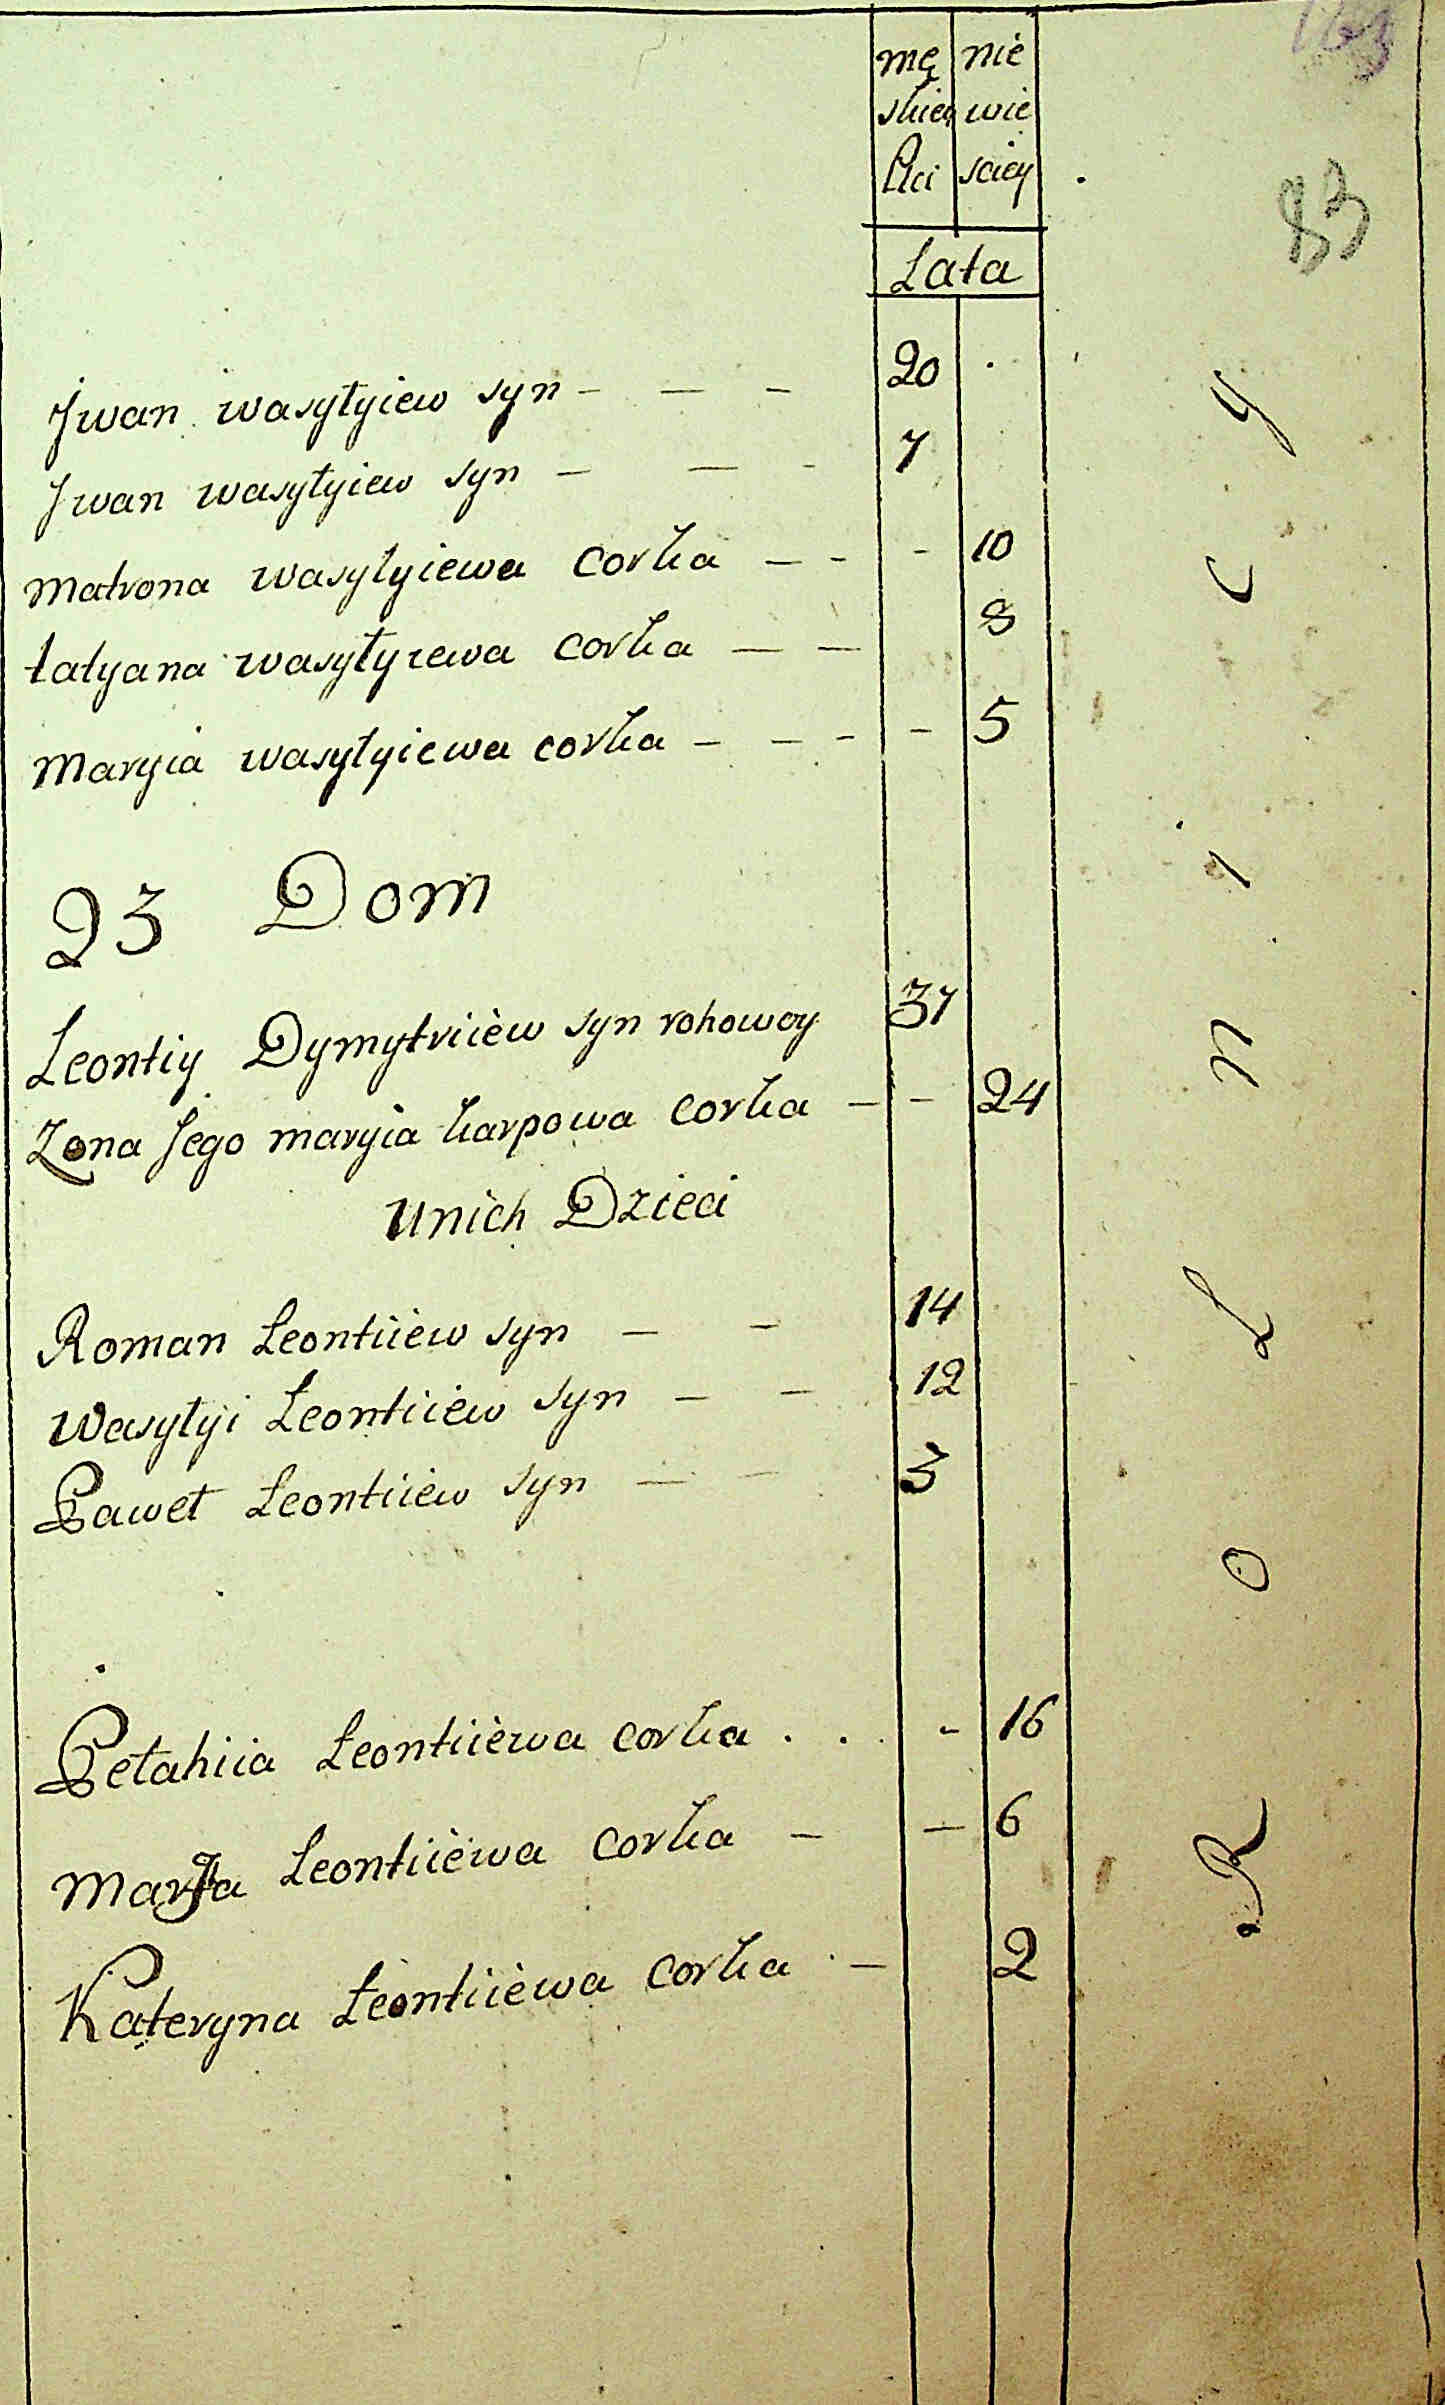 mę nie
skiey wie
Płci sciey
83
Lata
Jwan wasyłyiew syn - - - 20
Jwan wasyłyiew syn - - - 7
Matrona wasyłyiewa corka - - - 10
tatyana wasyłyiewa corka - - 8
Maryia wasyłyiewa corka - - - - 5
23 Dom
Leontiy Dymytriiew syn rohowoy 37
Zona Jego maryia karpowa corka - - 24
Unich Dzieci
Roman Leontiiew syn - - 14
Wasyłyi Leontiiew syn - - 12
Paweł Leontiiew syn - - 3
Pełahiia Leontiiewa corka . . - 16
Leontiiewa corka - - 6
Kateryna Leontiiewa corka - 2
ROLNICY